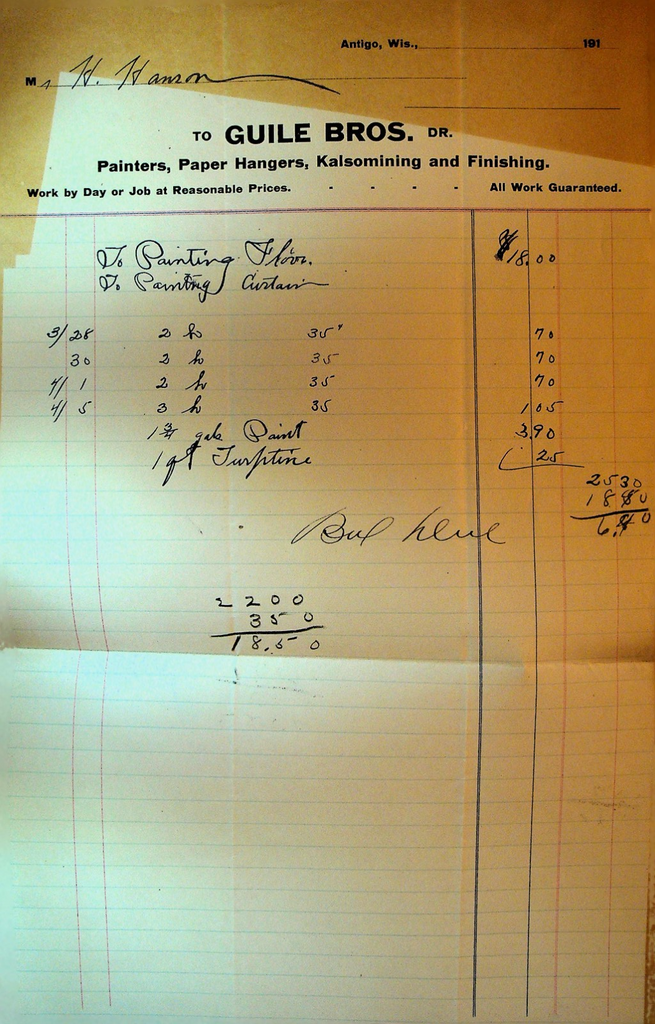 Antigo, Wis., 191
Mr H. Hanson
TO GUILE BROS. DR.
Painters, Paper Hangers, Kalsomining and Finishing.
Work by Day or Job at Reasonable Prices. - - - - All Work Guaranteed.
To Painting Floor. $18.00
To Painting Curtain
3/28 2 h 35" 70
30 2 h 35 70
4/1 2 h 35 70
4/5 3 h 35 1 05
1 3/4 gals Paint 3.90
1 qt Turptine 25
2530
Bal Due
2200
350
18.50